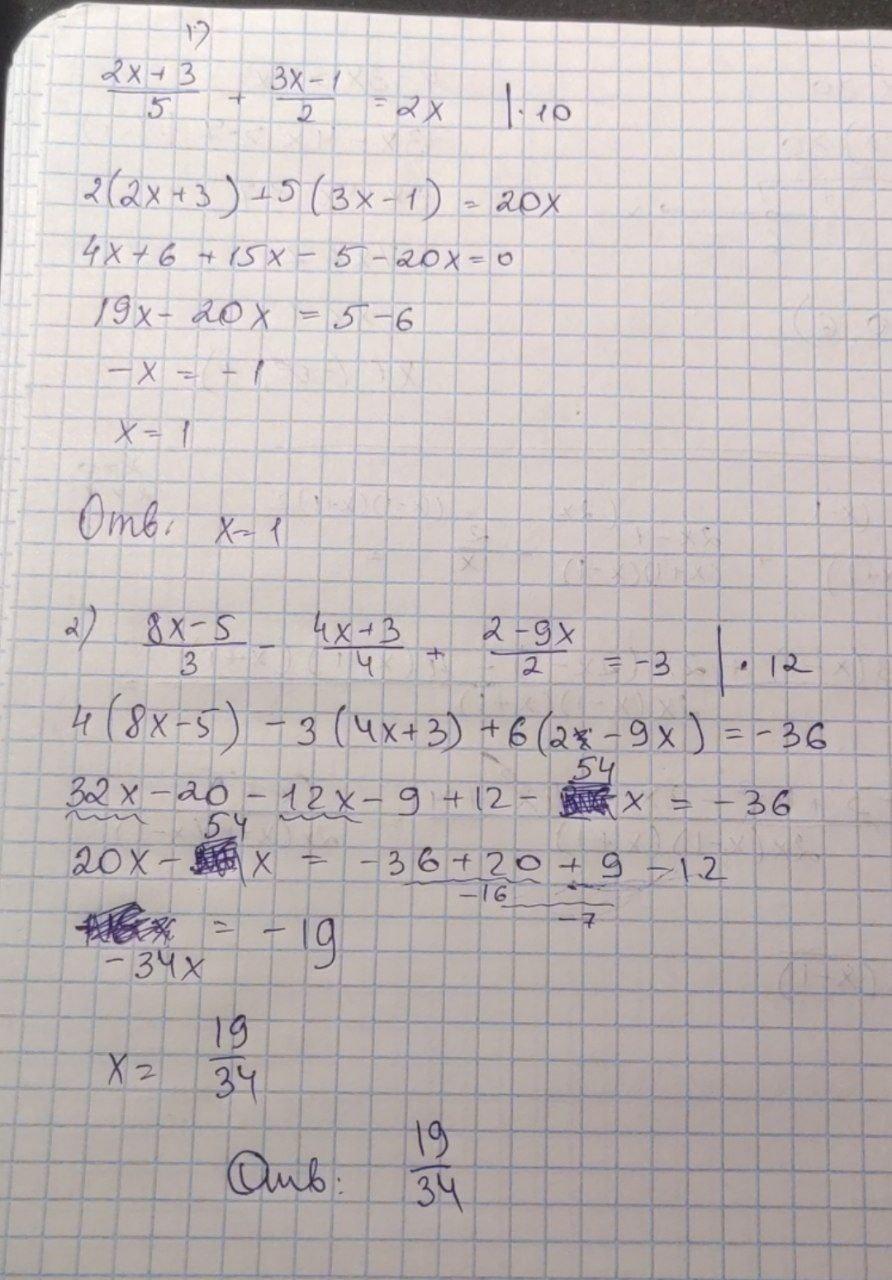 1)
(2x+3)/5 + (3x-1)/2 = 2x |·10
2(2x+3)+5(3x-1) = 20x
4x+6+15x-5-20x=0
19x-20x=5-6
-x=-1
x=1
Отв: x=1
2) (8x-5)/3 - (4x+3)/4 + (2-9x)/2 = -3 |·12
4(8x-5)-3(4x+3)+6(2-9x)=-36
32x-20-12x-9+12-54x=-36
20x-54x=-36+20+9-12
-16
-7
-34x=-19
x=19/34
Отв: 19/34